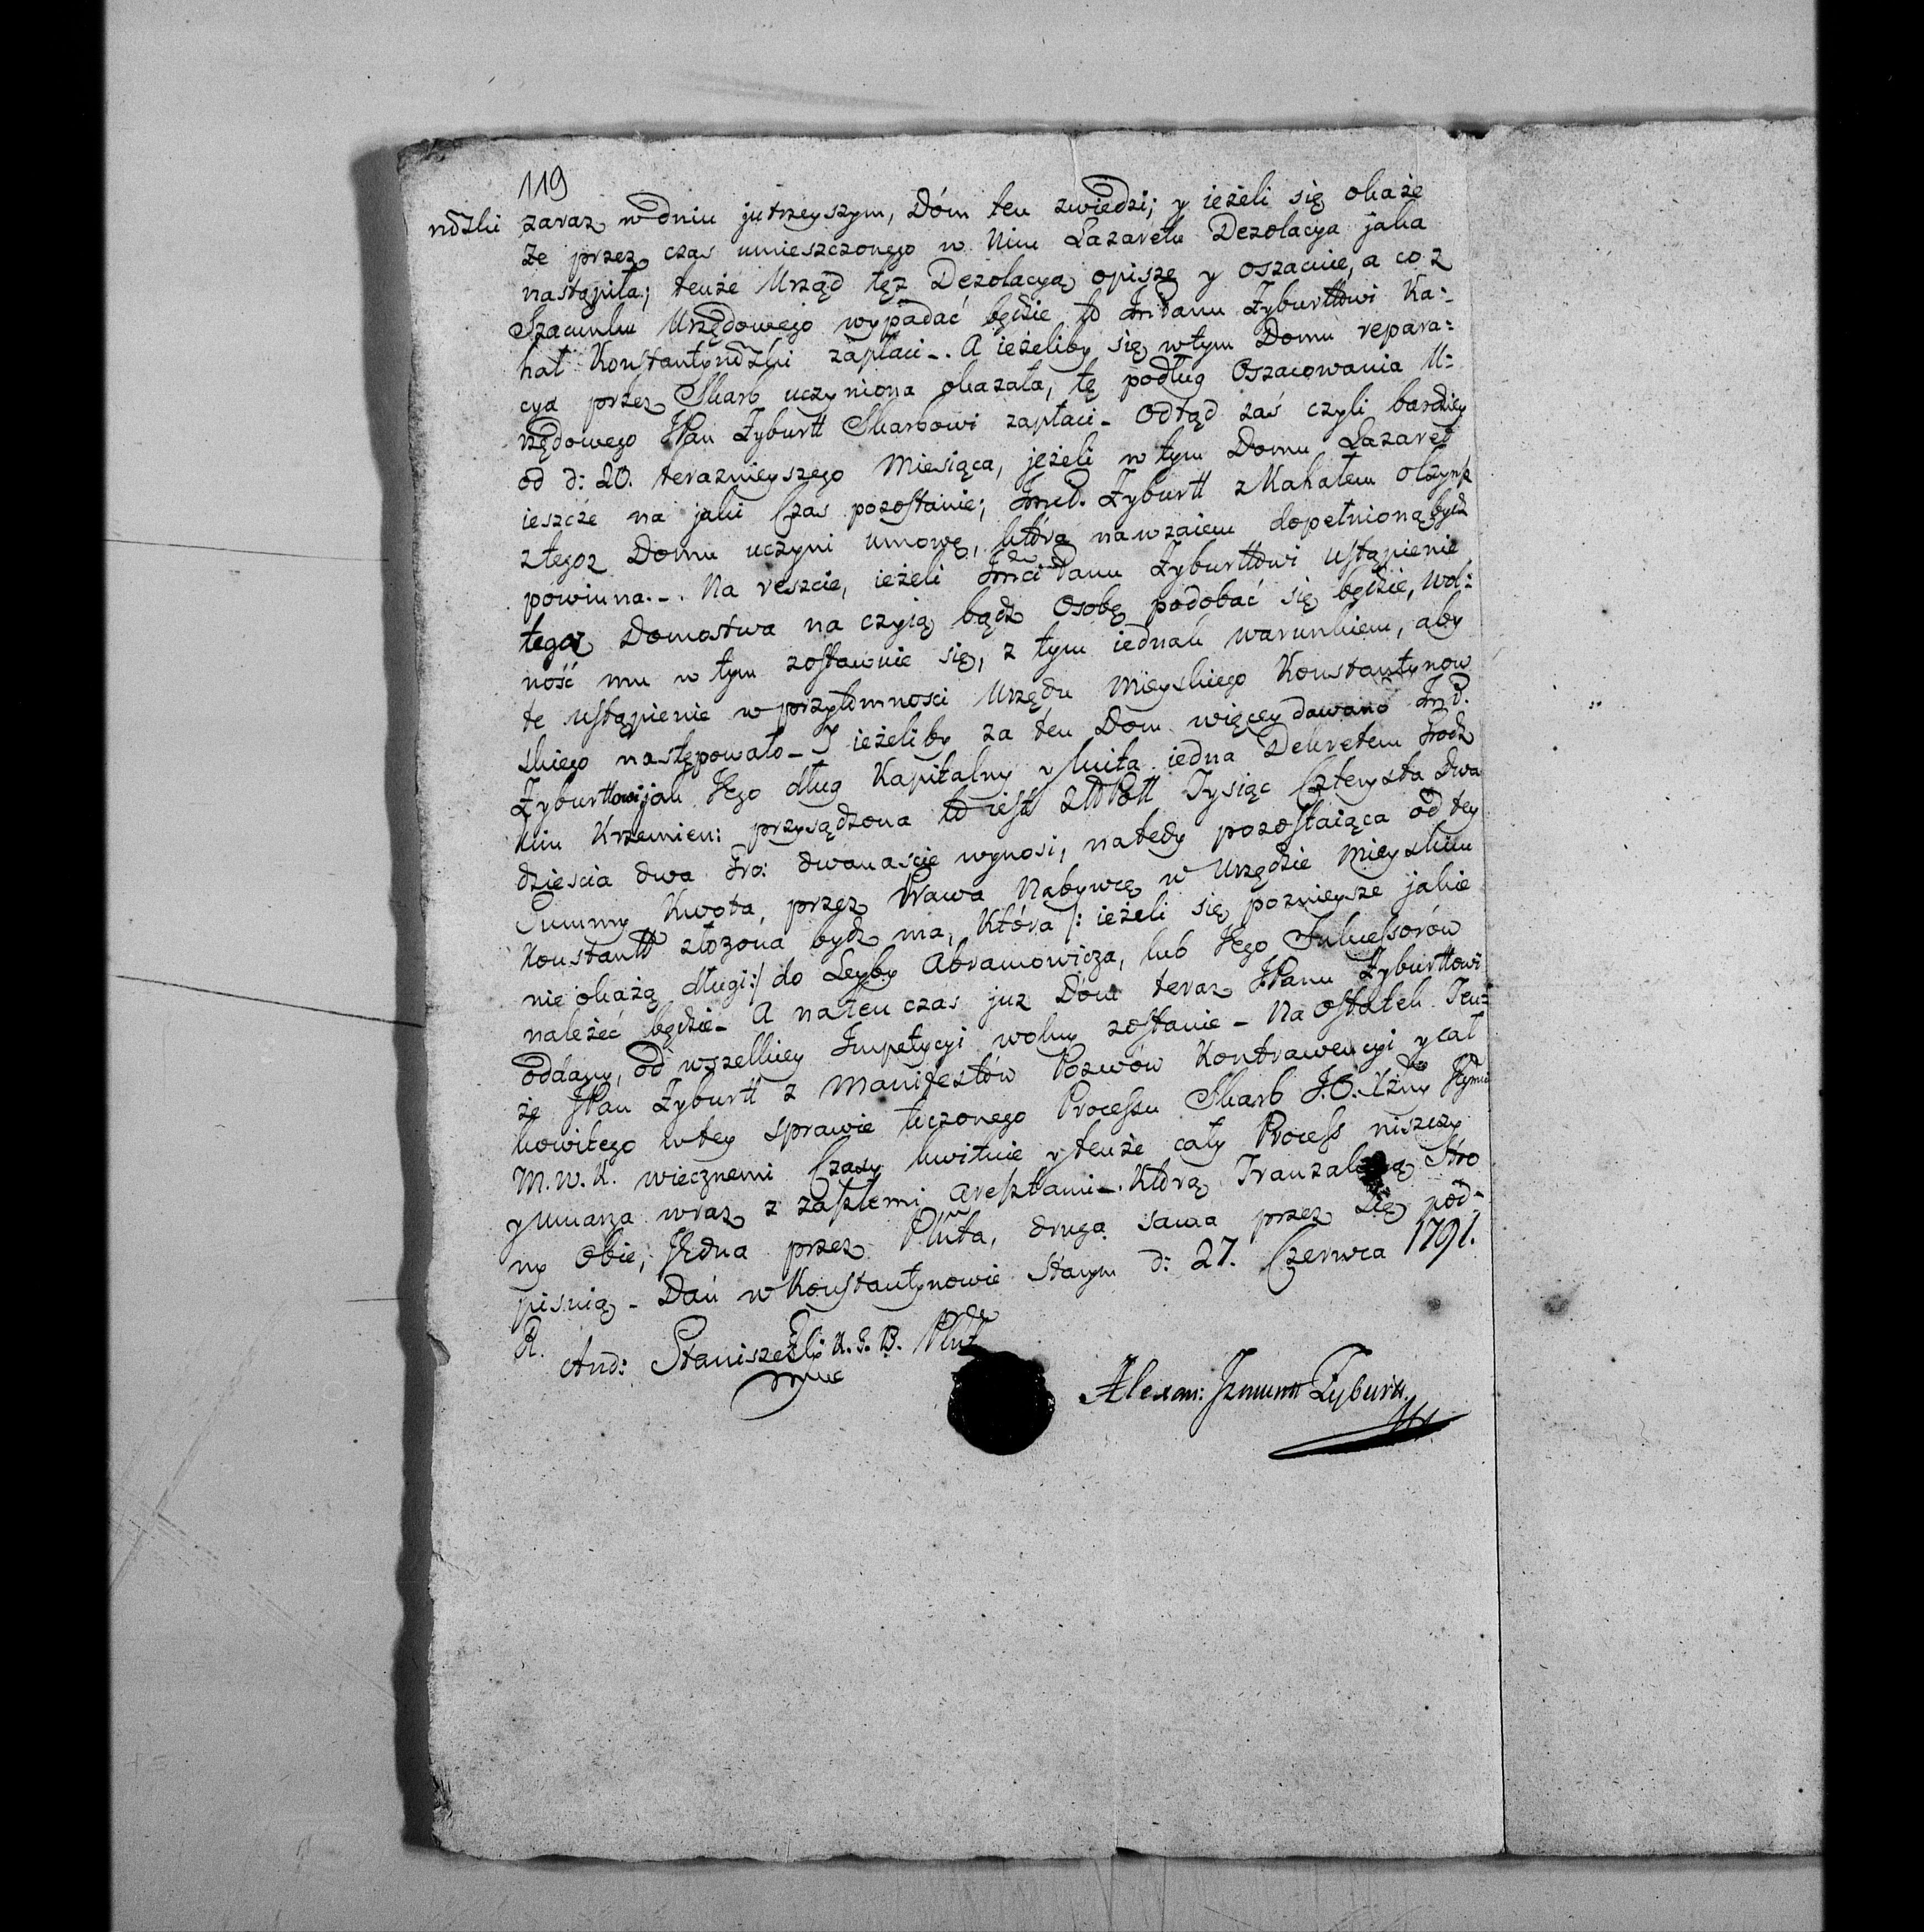 119
nowski zaraz w dniu jutrzeyszym, Dóm ten zwiedzi; y ieżeli się okaże
że przez czas umieszczonego w Nim Lazaretu Dezolacya jaka
nastąpiła; tenże Urząd tęz Dezolacyą opisze y oszacuie, a co z
Szacunku Urzędowego wypadać będzie to Panu Zyburttowi Ka:
hał Konstantynowski zapłaci. A ieżeliby się w tym Domu repara:
cya przez Skarb uczyniona okazała, tę podług Oszacowania U:
rzędowego JPan Zyburtt Skarbowi zapłaci - Odtąd zaś czyli bardziey
od d: 20. teraznieyszego Miesiąca, jeżeli w tym Domu Lazaret
ieszcze na jaki Czas pozostanie; Zyburtt z Kahałem o Czynsz
z tegoz Domu uczyni umowę, która nawzaiem dopełnioną bydz
powinna. - Na reszcie, ieżeli Jmci Panu Zyburttowi Ustąpienie
tegoz Domostwa na czyią bądz Osobę podobać się będzie, wol:
ność mu w tym zostawuie się, z tym iednak warunkiem, aby
te ustąpienie w przytomnosci Urzędu Mieyskiego Konstantynow
skiego następowało - I ieżeliby za ten Dom więcey dawano
Zyburttowi jak Jego dług Kapitalny y kwita iedna Dekretem Grodz
kim Krzemien: przysądzona to iest Tysiąc Czterysta Dwa
dziescia dwa Gro: dwanascie wynosi, natedy pozostaiąca od tey
Summy Kwota, przez Prawa Nabywcę w Urzędzie Mieyskim
Konstantt złożona bydz ma, Która /: ieżeli się poznieysze jakie
nie okażą długi:/ do Leyby Abramowicza, lub Jego Sukcessorów
należeć będzie - A na ten czas juz Dom teraz JPanu Zyburttowi
oddany, od wszelkiey Impetycyi wolny zostanie - Na ostatek Ten:
że JPan Zyburtt z Manifestów Pozwów Kontrawencyi y cał
kowitego w tey sprawie toczonego Processu Skarb J.O.
M. W. K. wiecznemi Czasy kwituie y tenże cały Process niszczy
y umarza wraz z zaszłemi aresztami. Którą Tranzakcyą Stro
ny Obie, Jedna przez Pluta, druga sama przez Się pod:
pisuią - Dań w Konstantynowie Starym d: 27. Czerwca 1791.
R.
And: Staniszewski Plut
Alexan: Zyburtt